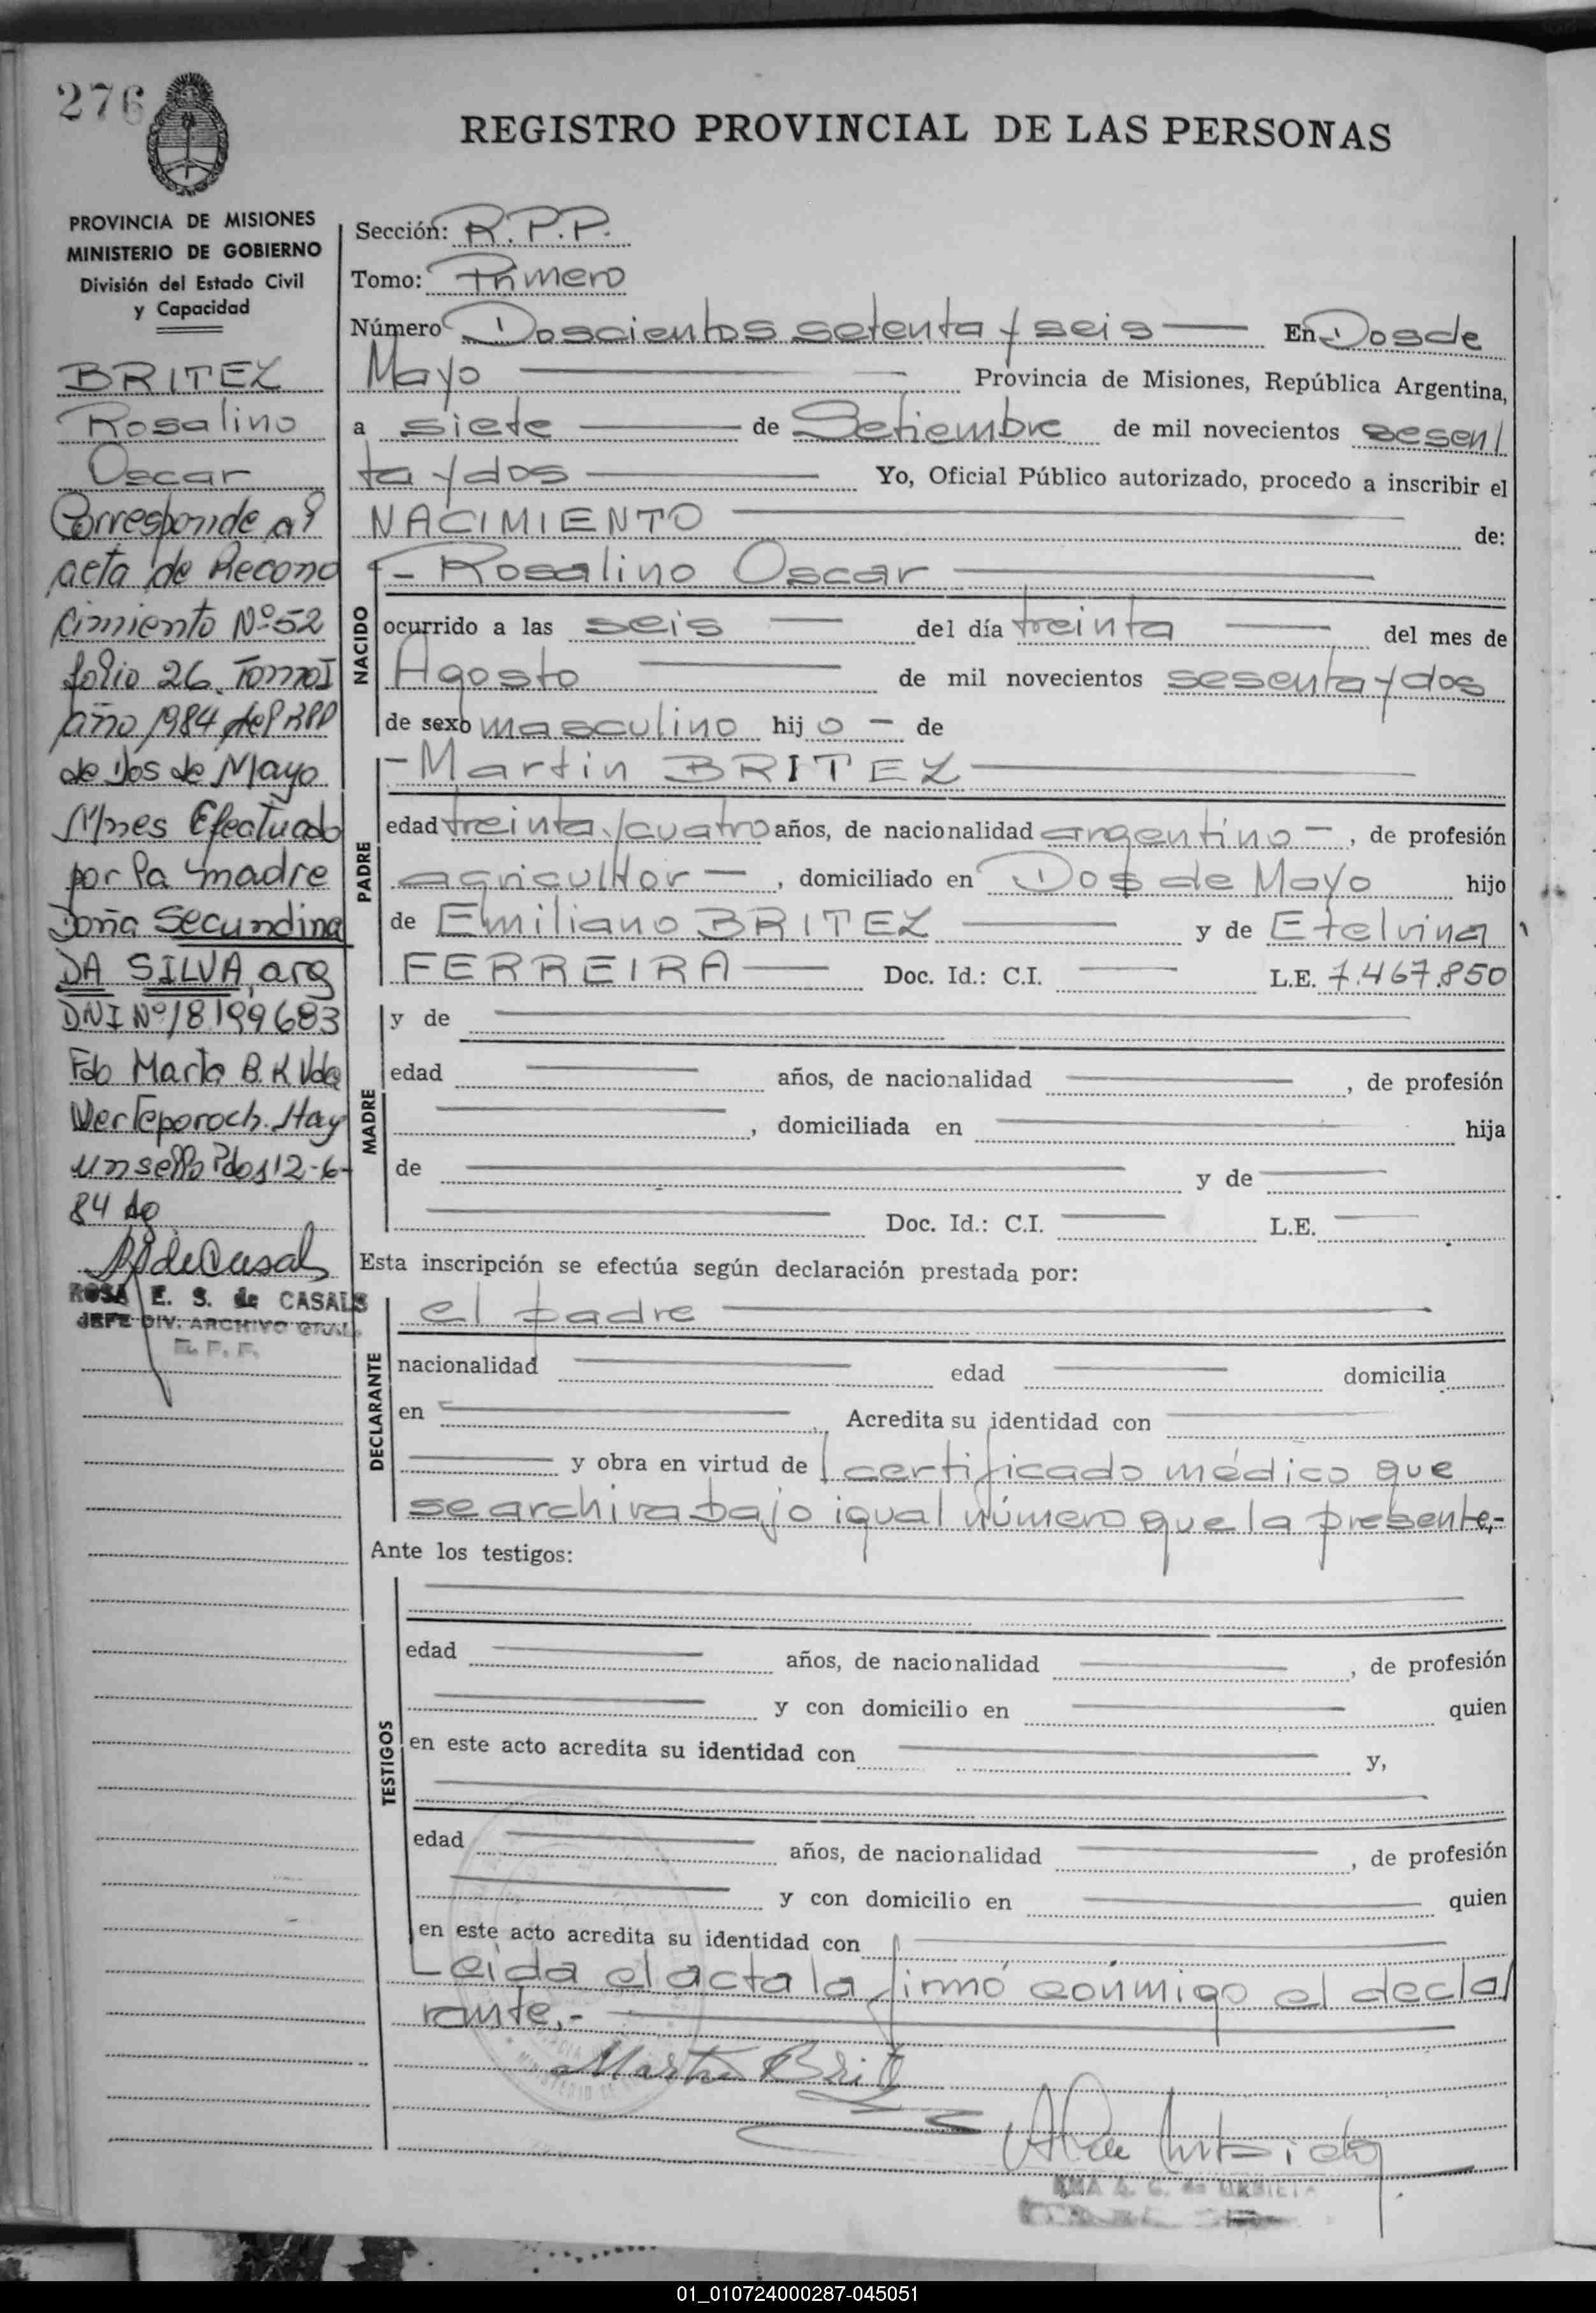 276
REGISTRO PROVINCIAL DE LAS PERSONAS
PROVINCIA DE MISIONES
MINISTERIO DE GOBIERNO
División del Estado Civil
y Capacidad
BRITEZ
Rosalino
Oscar
Corresponde al
acta de Recono
cimiento Nº 52
folio 26. Tomo I
año 1984 del RPP
de Dos de Mayo
Mnes Efectuado
por la madre
Doña Secundina
DA SILVA, arg
DNI Nº 18199683
Fdo Marta B. K Vda
Werteporoch. Hay
un sello Pdos 12-6-
84
ROSA E. S. de CASALS
JEFE DIV. ARCHIVO GRAL.
R. P. P.
Sección: R.P.P.
Tomo: Primero
Número Doscientos setenta y seis En Dos de
Mayo Provincia de Misiones, República Argentina,
a siete de Setiembre de mil novecientos sesen/
ta y dos Yo, Oficial Público autorizado, procedo a inscribir el
NACIMIENTO de:
NACIDO
- Rosalino Oscar
ocurrido a las seis del día treinta del mes de
Agosto de mil novecientos sesenta y dos
de sexo masculino hijo - de
PADRE
- Martin BRITEZ
edad treinta y cuatro años, de nacionalidad argentino -, de profesión
agricultor -, domiciliado en Dos de Mayo hijo
de Emiliano BRITEZ y de Etelvina
FERREIRA Doc. Id.: C.I. L.E. 7.467.850
MADRE
y de
edad años, de nacionalidad , de profesión
, domiciliada en hija
de y de
Doc. Id.: C.I. L.E.
Esta inscripción se efectúa según declaración prestada por:
DECLARANTE
el padre
nacionalidad edad domicilia
en Acredita su identidad con
y obra en virtud de certificado médico que
se archiva bajo igual número que la presente,-
Ante los testigos:
TESTIGOS
edad años, de nacionalidad , de profesión
y con domicilio en quien
en este acto acredita su identidad con y,
edad años, de nacionalidad , de profesión
y con domicilio en quien
en este acto acredita su identidad con
Leida el acta la firmó conmigo el decla/
rante,-
Martin Brit
ANA A. G. de URBIETA
01_010724000287-045051